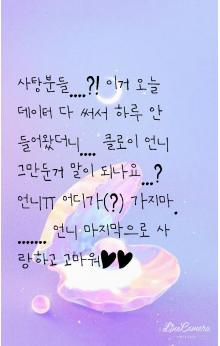 사탕분들....?! 이거 오늘
데이터 다 써서 하루 안
들어왔더니.... 클로이 언니
그만둔거 말이 되나요...?
언니ㅠ 어디가(?) 가지마.
....... 언니 마지막으로 사
랑하고 고마워♥♥
LineCamera